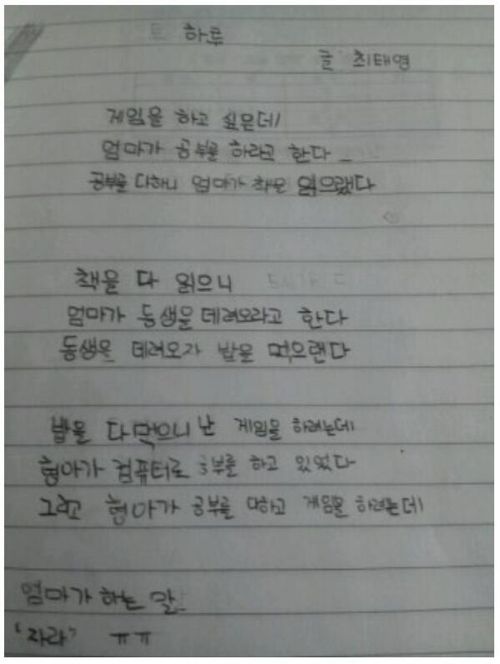 하루
글 최태영
게임을 하고 싶은데
엄마가 공부를 하라고 한다
공부를 다하니 엄마가 책을 읽으랬다
책을 다 읽으니
엄마가 동생을 데려오라고 한다
동생을 데려오자 밥을 먹으랜다
밥을 다먹으니 난 게임을 하려는데
형아가 컴퓨터로 공부를 하고 있었다
그리고 형아가 공부를 다하고 게임을 하려는데
엄마가 하는 말
'자라' ㅠㅠ